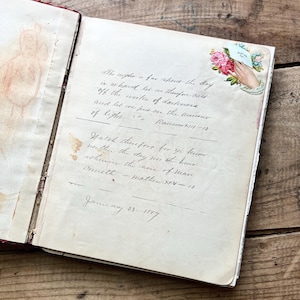 The night is far spent the day
is at hand let us therefore cast
off the works of darkness
and let us put on the armor
of light. Romans XIII - 12
Watch therefore for ye know
neither the day nor the hour
wherein the son of Man
cometh - Mathew XXV - 13
January 23 -